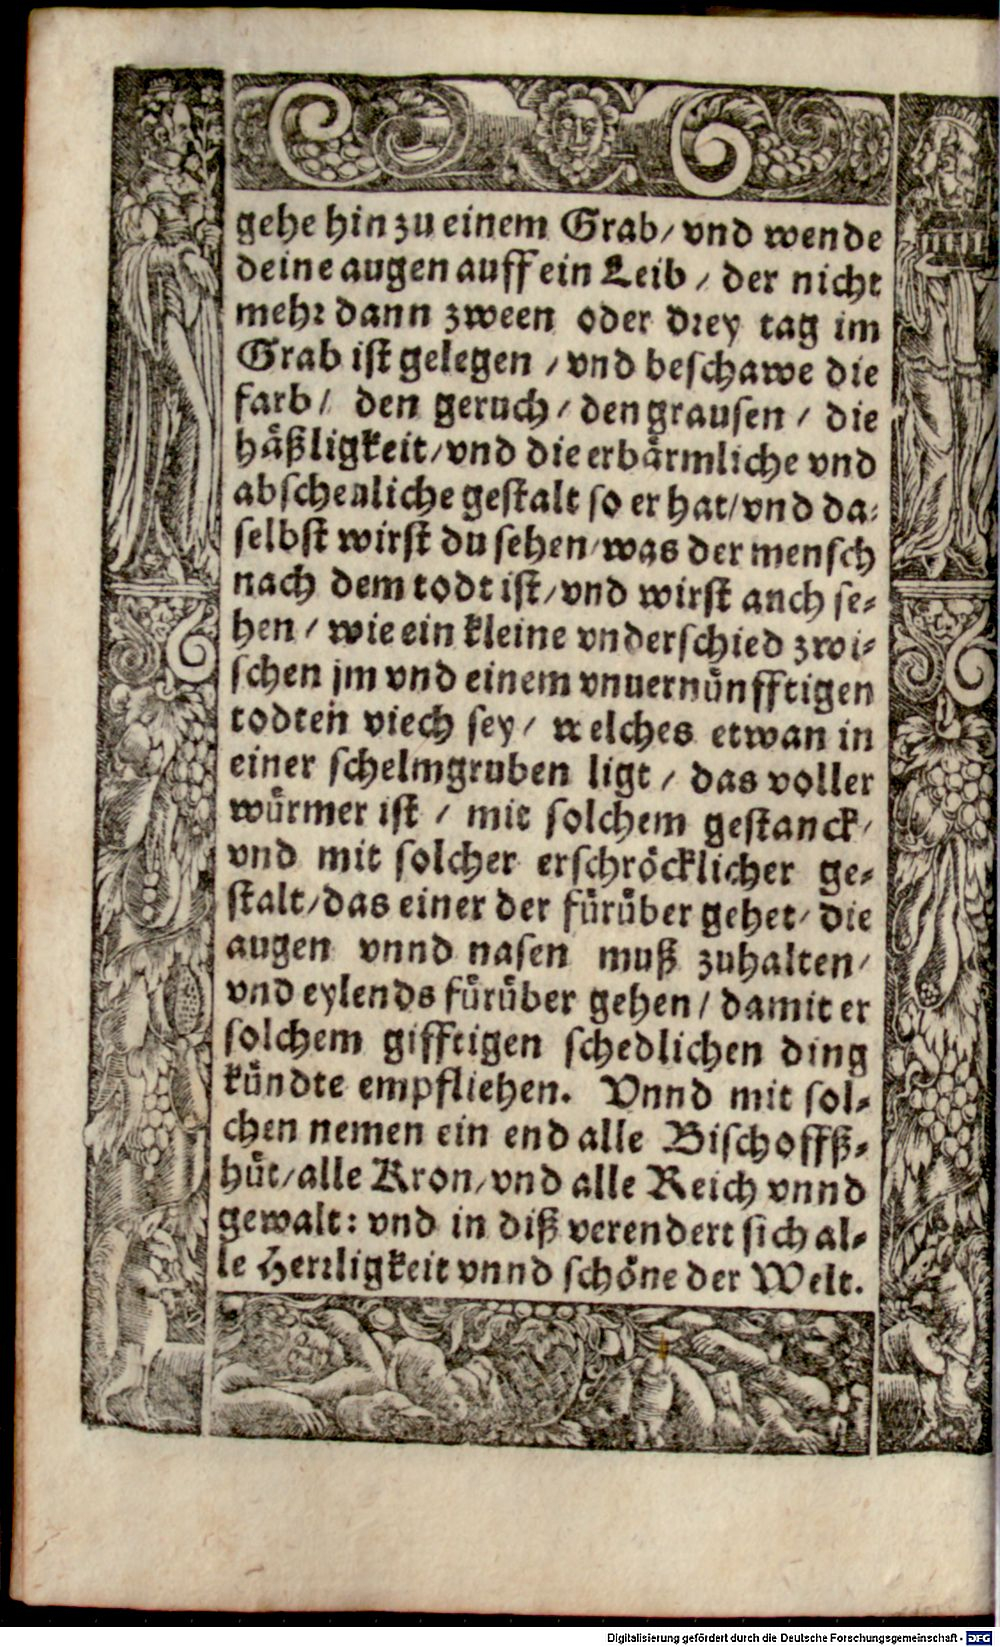 gehe hin zu einem Grab/ vnd wende
deine augen auff ein Leib / der nicht
mehr dann zween oder drey tag im
Grab ist gelegen / vnd beschawe die
farb/ den geruch/ den grausen / die
häßligkeit/vnd die erbärmliche vnd
abscheuliche gestalt so er hat/vnd da-
selbst wirst du sehen/was der mensch
nach dem todt ist/vnd wirst auch se-
hen / wie ein kleine vnderschied zwi-
schen jm vnd einem vnuernünfftigen
todten viech sey/ welches etwan in
einer schelmgruben ligt / das voller
würmer ist / mit solchem gestanck/
vnd mit solcher erschröcklicher ge-
stalt/das einer der fürüber gehet/ die
augen vnnd nasen muß zuhalten/
vnd eylends fürüber gehen/ damit er
solchem gifftigen schedlichen ding
kündte empfliehen. Vnnd mit sol-
chen nemen ein end alle Bischoffß-
hüt/alle Kron/vnd alle Reich vnnd
gewalt: vnd in diß verendert sich al-
le Herrligkeit vnnd schöne der Welt.
Digitalisierung gefördert durch die Deutsche Forschungsgemeinschaft - DFG